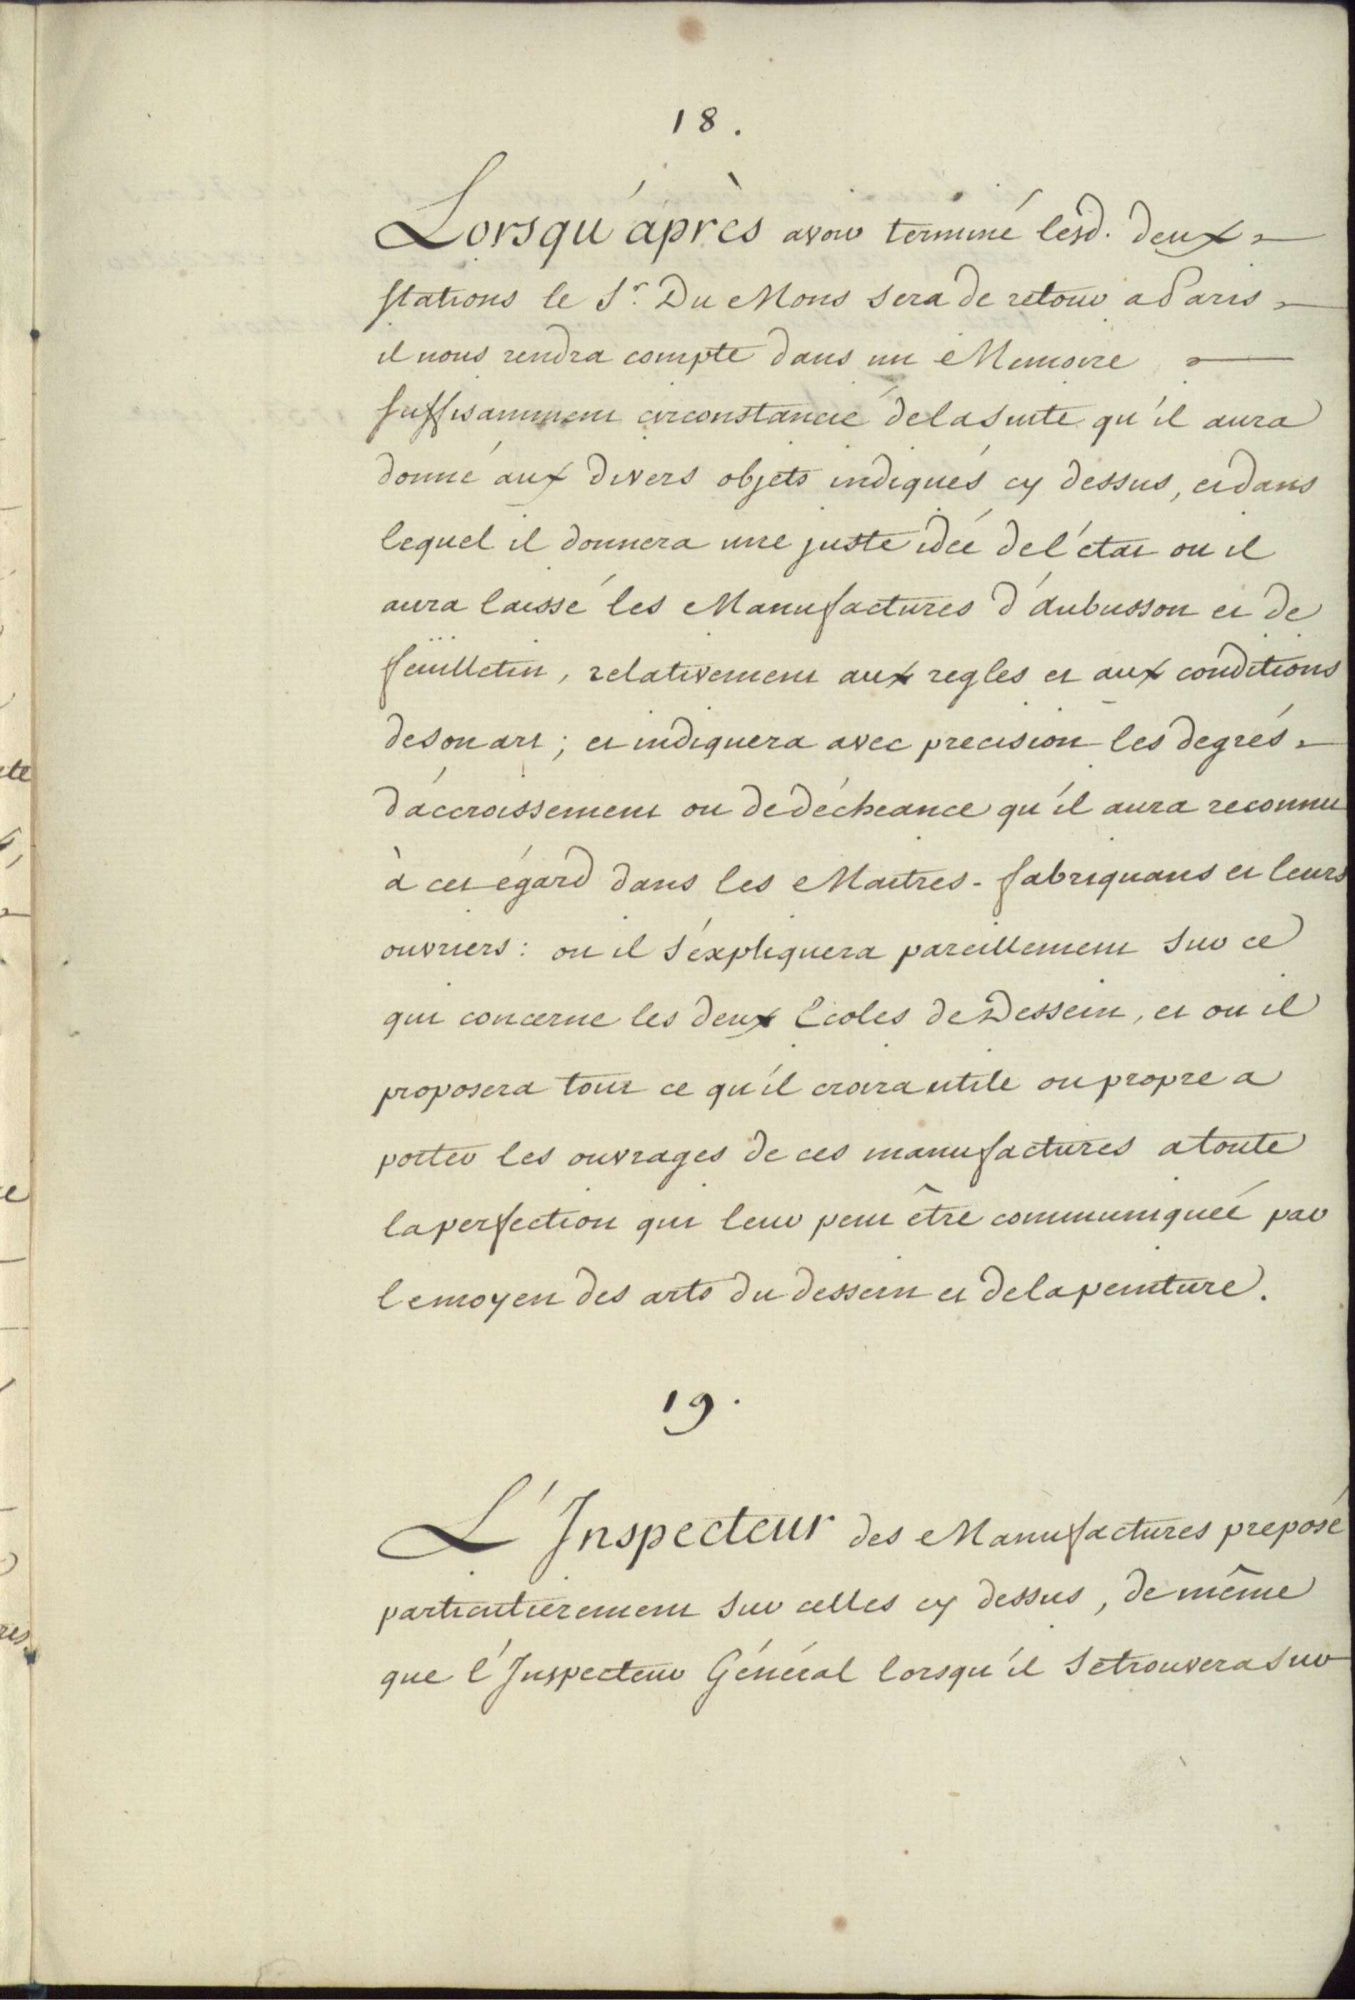 18.
Lorsqu'après avoir terminé lesd. deux
stations le Sr. Du Mons sera de retour a Paris
il nous rendra compte dans un Memoire
suffisamment circonstancié de la suite qu'il aura
donné aux divers objets indiqués cy dessus, et dans
lequel il donnera une juste idée de l'état ou il
aura laissé les Manufactures d'Aubusson et de
feuilletin, relativement aux regles et aux conditions
de son art; et indiquera avec precision les degrés
d'accroissement ou de décheance qu'il aura reconnu
à cet égard dans les Maitres-fabriquans et leurs
ouvriers: ou il s'expliquera pareillement sur ce
qui concerne les deux Ecoles de Dessein, et ou il
proposera tout ce qu'il croira utile ou propre a
porter les ouvrages de ces manufactures a toute
la perfection qui leur peut être communiquée par
le moyen des arts du dessein et de la peinture.
19.
L'Inspecteur des Manufactures preposé
particulierement sur celles cy dessus, de même
que l'Inspecteur Général lorsqu'il se trouvera sur